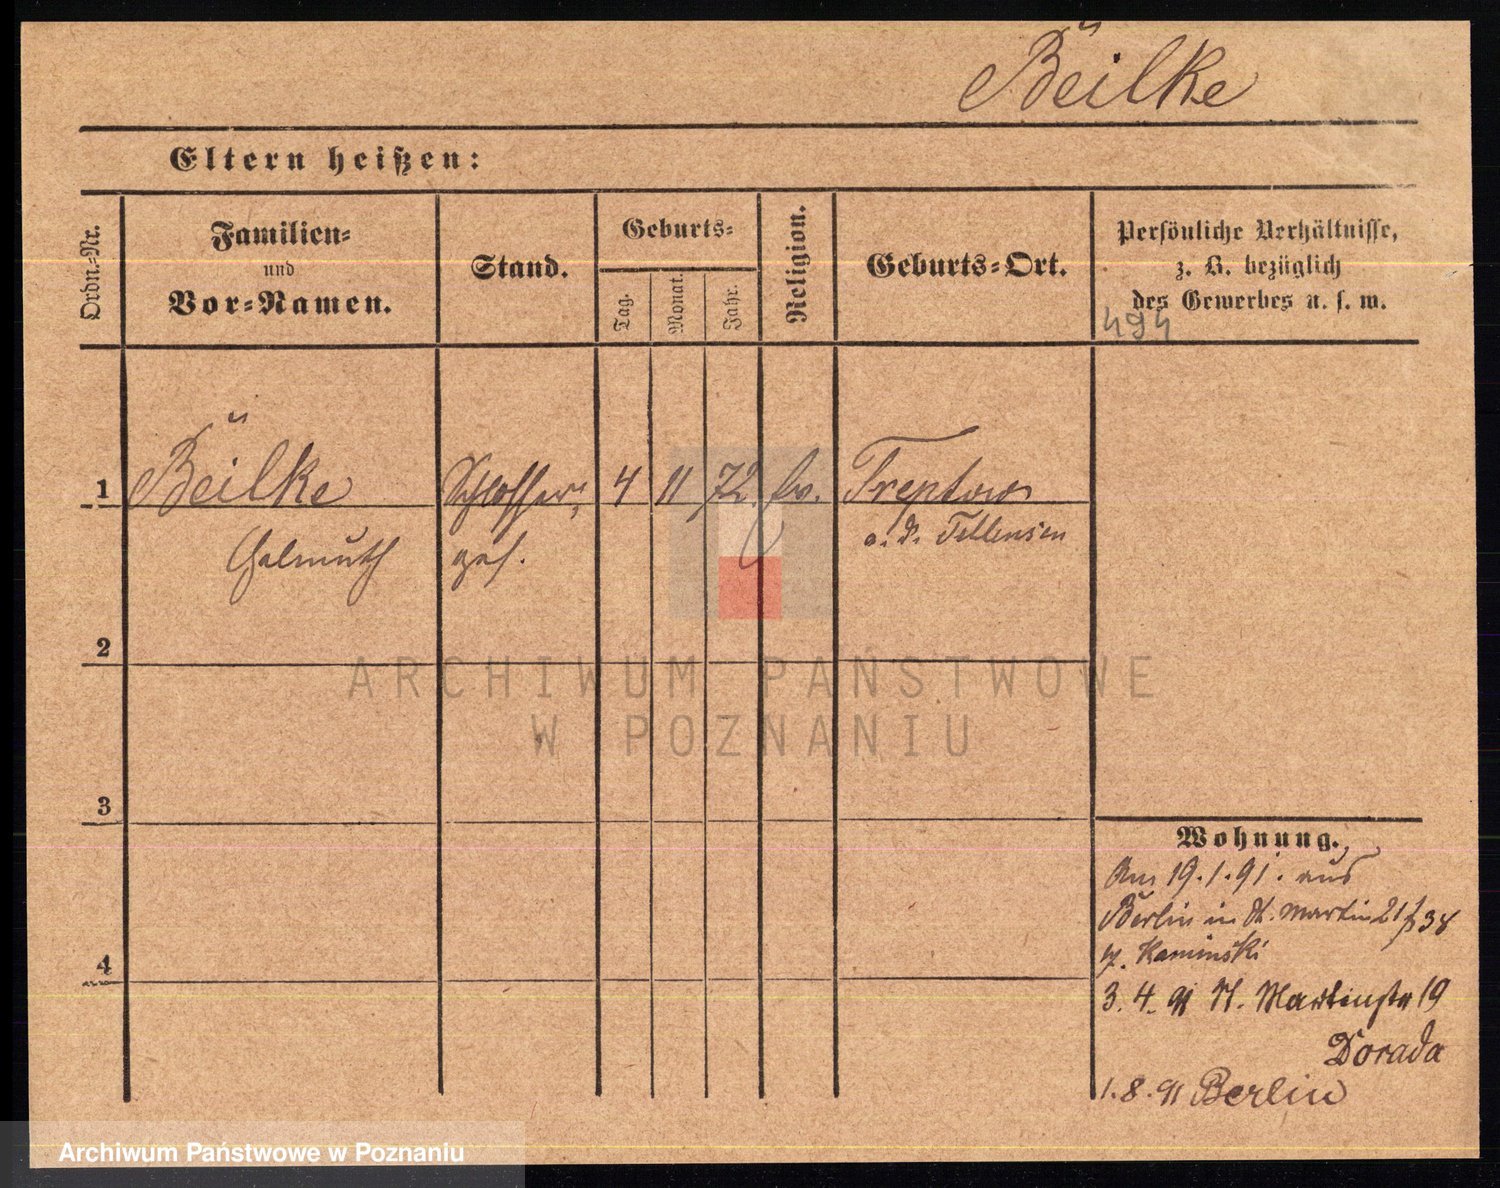 Beilke
Eltern heißen:
Ordn.-Nr.
Familien-
und
Vor-Namen.
Stand.
Geburts-
Tag.
Monat.
Jahr.
Religion.
Geburts-Ort.
Persönliche Verhältnisse,
z. B. bezüglich
des Gewerbes u. s. w.
494
1 Beilke Schlosser, 4 11 72. ev. Treptow
Helmuth ges. a. d. Tollensen
2
ARCHIWUM PAŃSTWOWE
W POZNANIU
3
Wohnung.
Am 19.1.91. aus
Berlin in St. Martin 21 38
Kaminski
3. 4. 91 St. Martinstr 19
Dorada
4
1. 8. 91 Berlin
Archiwum Państwowe w Poznaniu